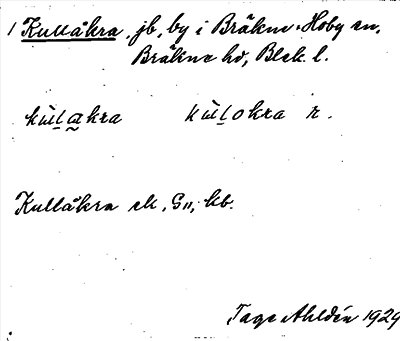 1 Kullåkra, jb, by i Bräkne-Hoby sn,
Bräkne hd, Blek. l.
kùl̠a̰kra kùl̠okra r.
Kullåkra ek, Gs, kb.
Tage Ahldén 1929